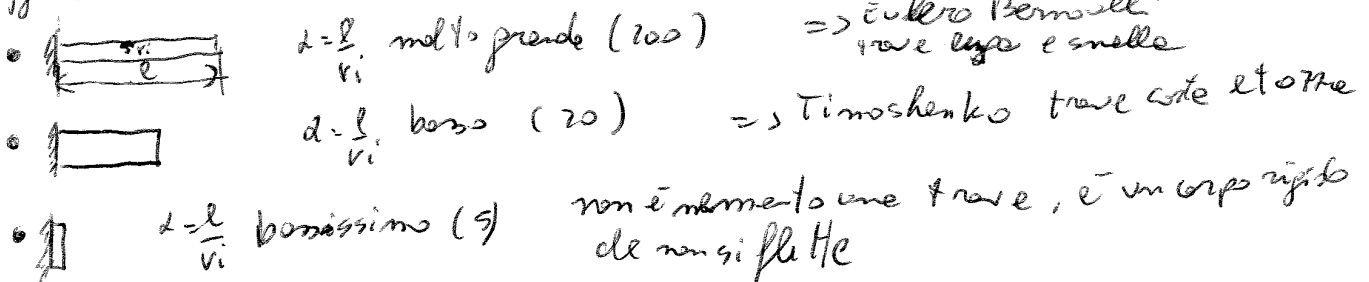 α = l/ri molto grande (200) => Eulero Bernoulli
trave lunga e snella
ri
l
α = l/ri basso (20) => Timoshenko trave corte e tozze
α = l/ri bassissimo (5) non è nemmeno una trave, è un corpo rigido
che non si flette